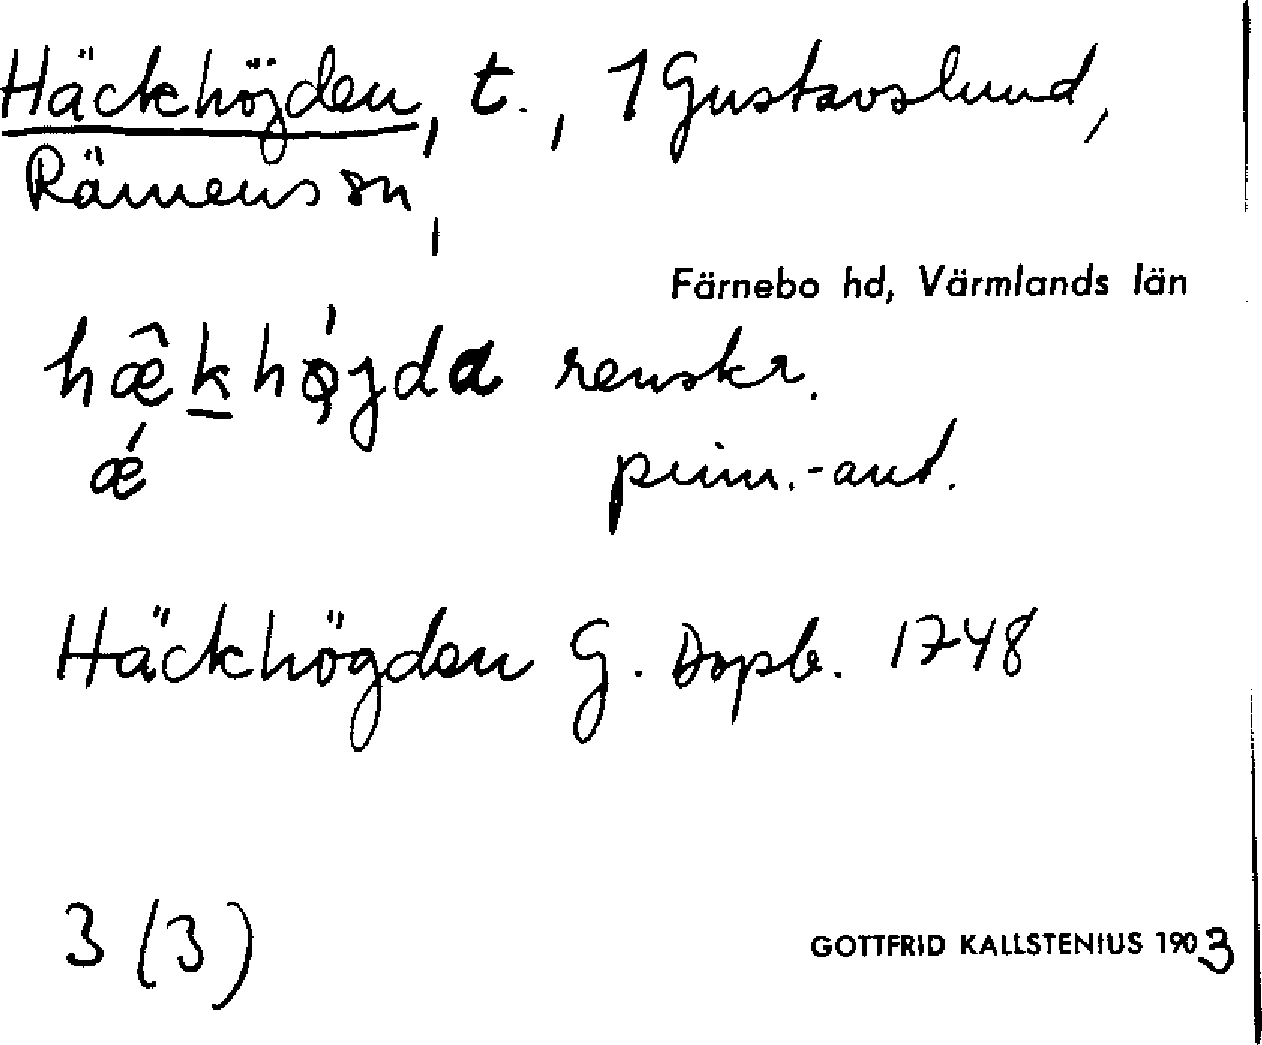 Häckhöjden, t., 1 Gustavslund,
Rämens sn,
Färnebo hd, Värmlands län
hæ̂khǿjda renskr.
ǽ prim.-ant.
Häckhögden G. Dopb. 1748
3 (3)
GOTTFRID KALLSTENIUS 1903